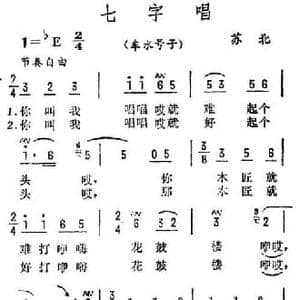 七字唱
1=♭E 2/4 (车水号子) 苏北
节奏自由
2/4 3 2 | i i 6 5 | 5 3 5 3 |
1.你叫我 唱唱哎就 难 起个
2.你叫我 唱唱哎就 好 起个
i·6 5 | 5 0 5 | 3/8 3 5 5
头 哎, 你 木匠就
头 哎, 那 木匠就
2/4 i i 6 5 | 2/4 6 3 2 | 3 5 5
难打咿嗨 花鼓 楼 咿哎,
好打咿嗨 花鼓 楼 咿哎,